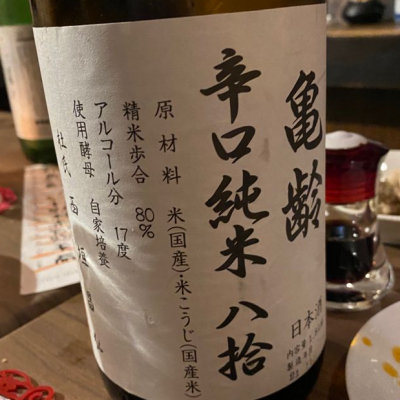 亀齢
辛口純米 八拾
原材料 米(国産)・米こうじ(国産米)
精米歩合 80%
アルコール分 17度
使用酵母 自家培養
杜氏 西垣
日本酒
内容量
製造